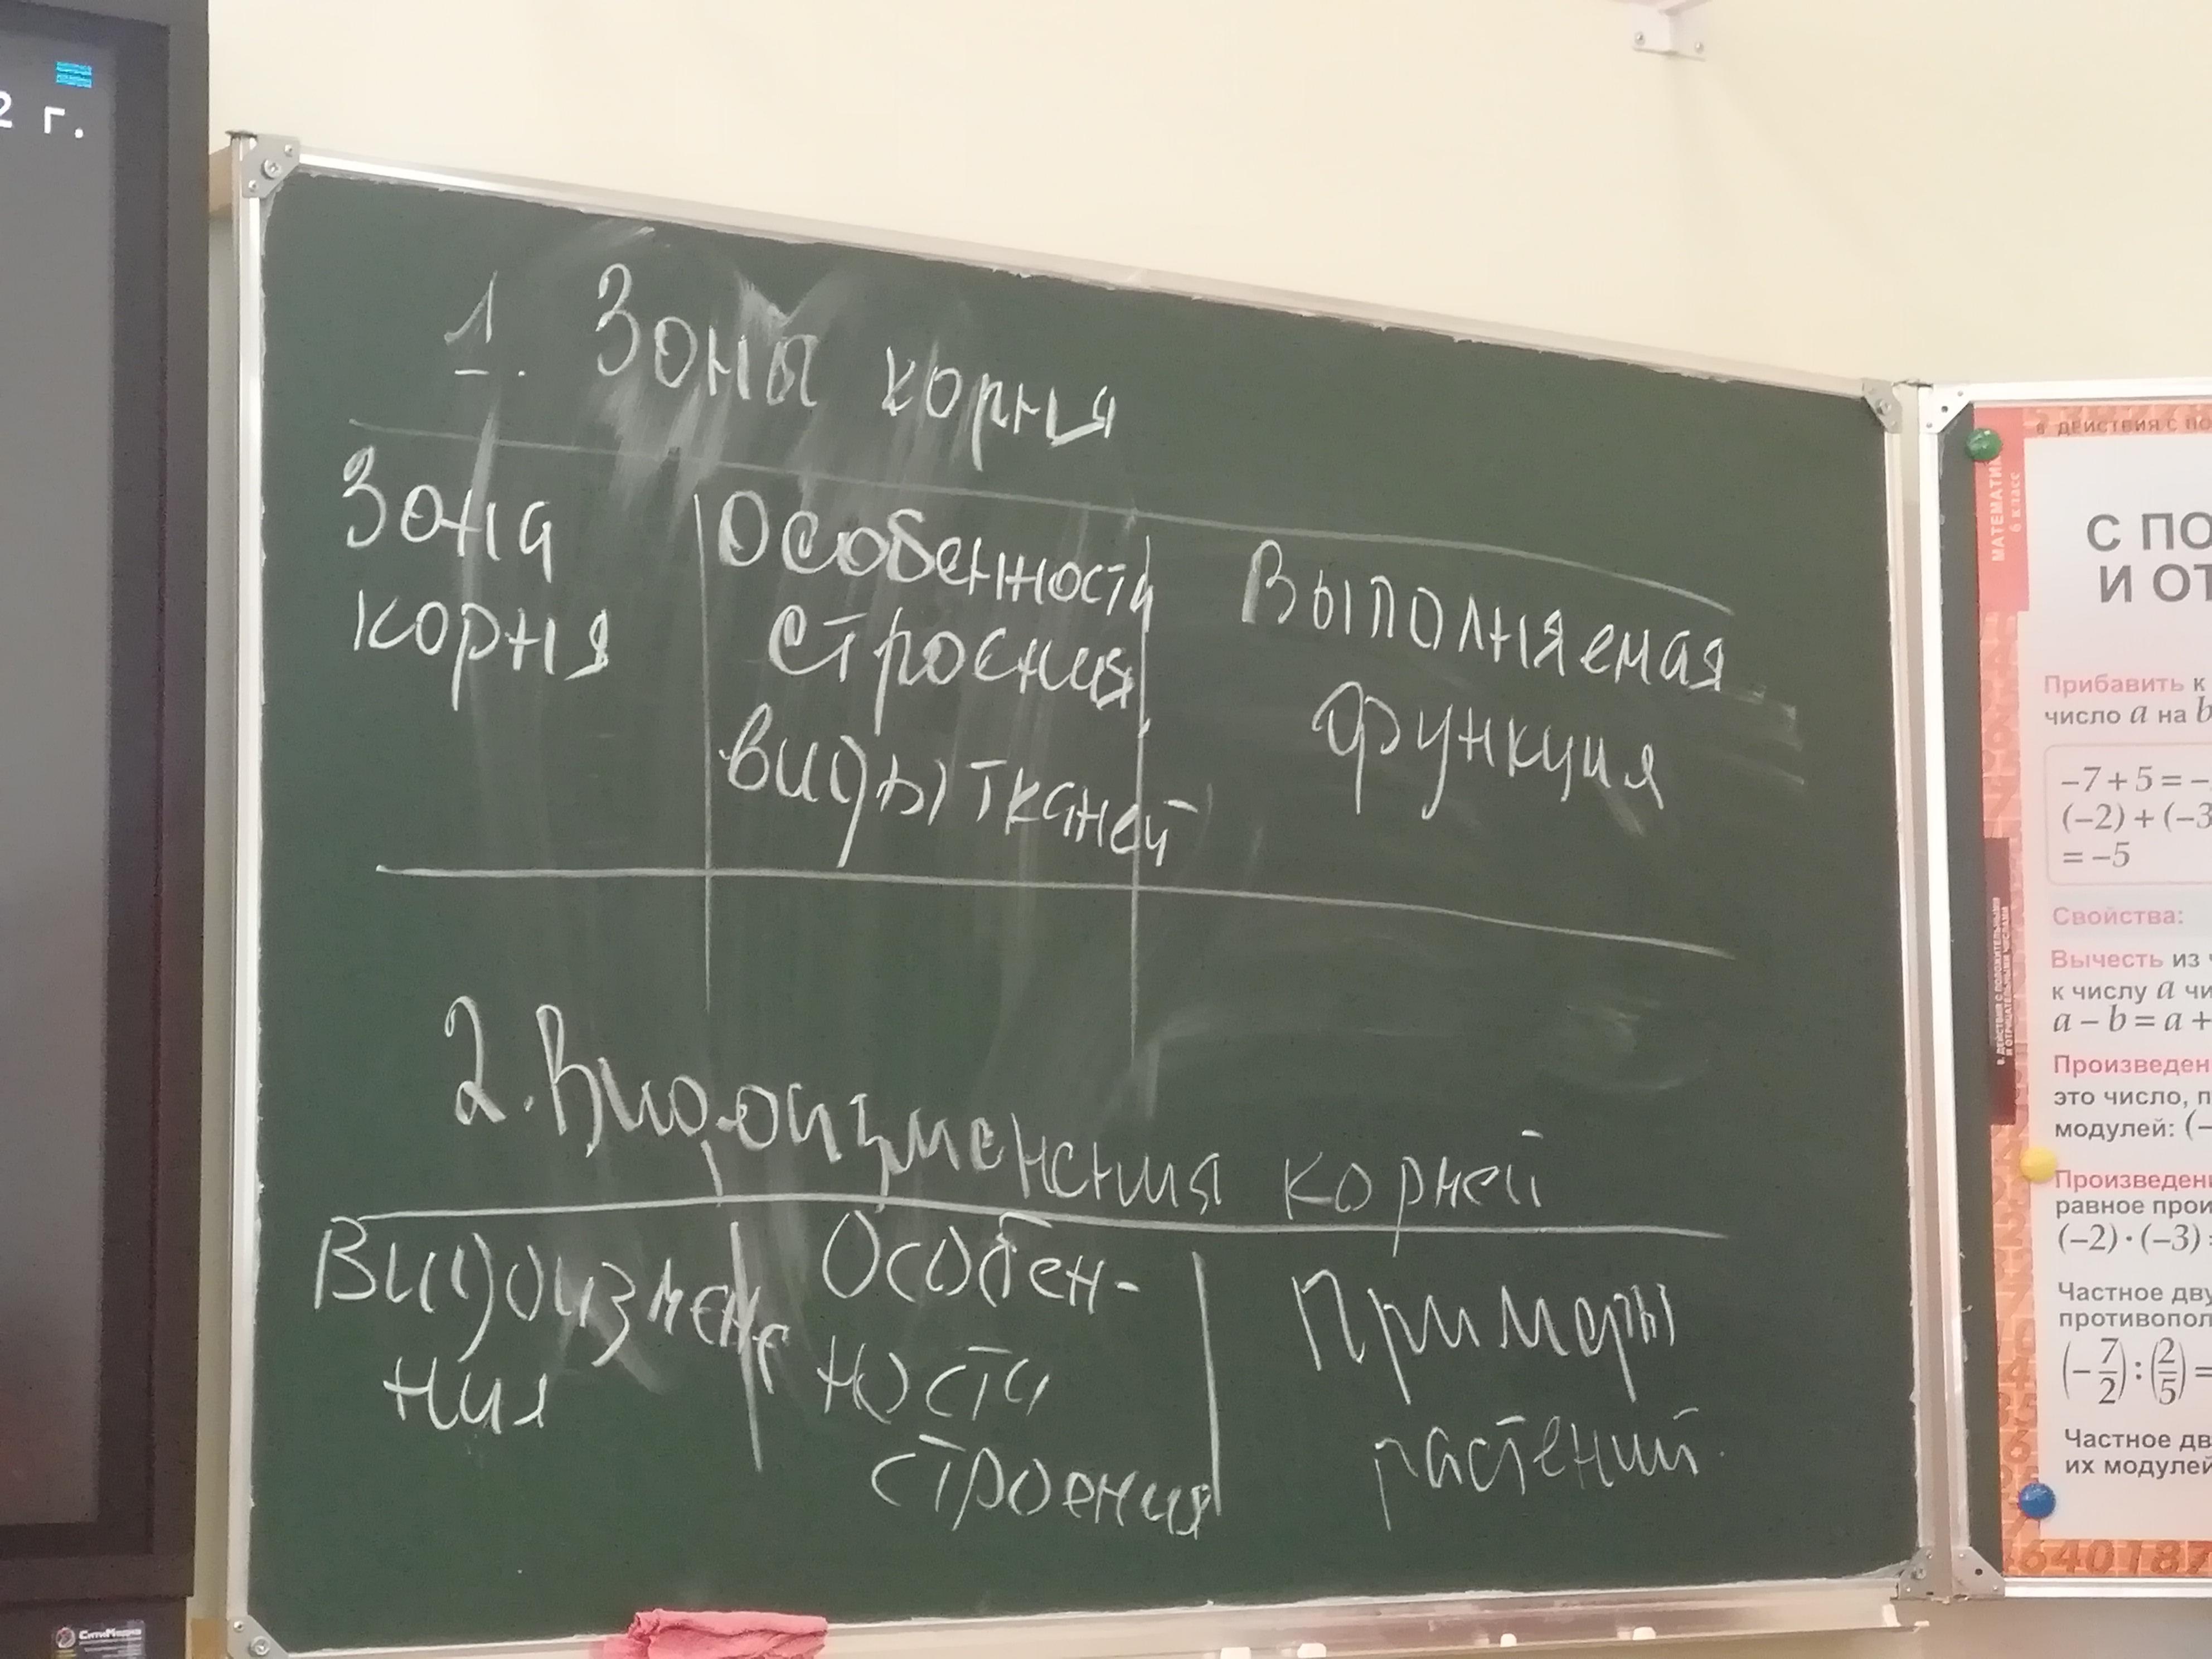 2 г.
1. Зоны корня
Зона
корня
Особенности
строения,
виды тканей
Выполняемая
функция
2. Видоизменения корней
Видоизмене
ния
Особен-
ности
строения
Примеры
растений.
СитиМедиа
МАТЕМАТИК
6 класс
8 ДЕЙСТВИЯ С ПО
8. ДЕЙСТВИЯ С ПОЛОЖИТЕЛЬНЫМИ
И ОТРИЦАТЕЛЬНЫМИ ЧИСЛАМИ
С ПО
И ОТ
Прибавить к
число a на b
−7 + 5 = −
(−2) + (−3
= −5
Свойства:
Вычесть из
к числу a чи
a − b = a +
Произведен
это число, п
модулей: (−
Произведени
равное прои
(−2) · (−3) =
Частное дву
противопол
(−7/2) : (2/5) =
Частное дв
их модулей
640187